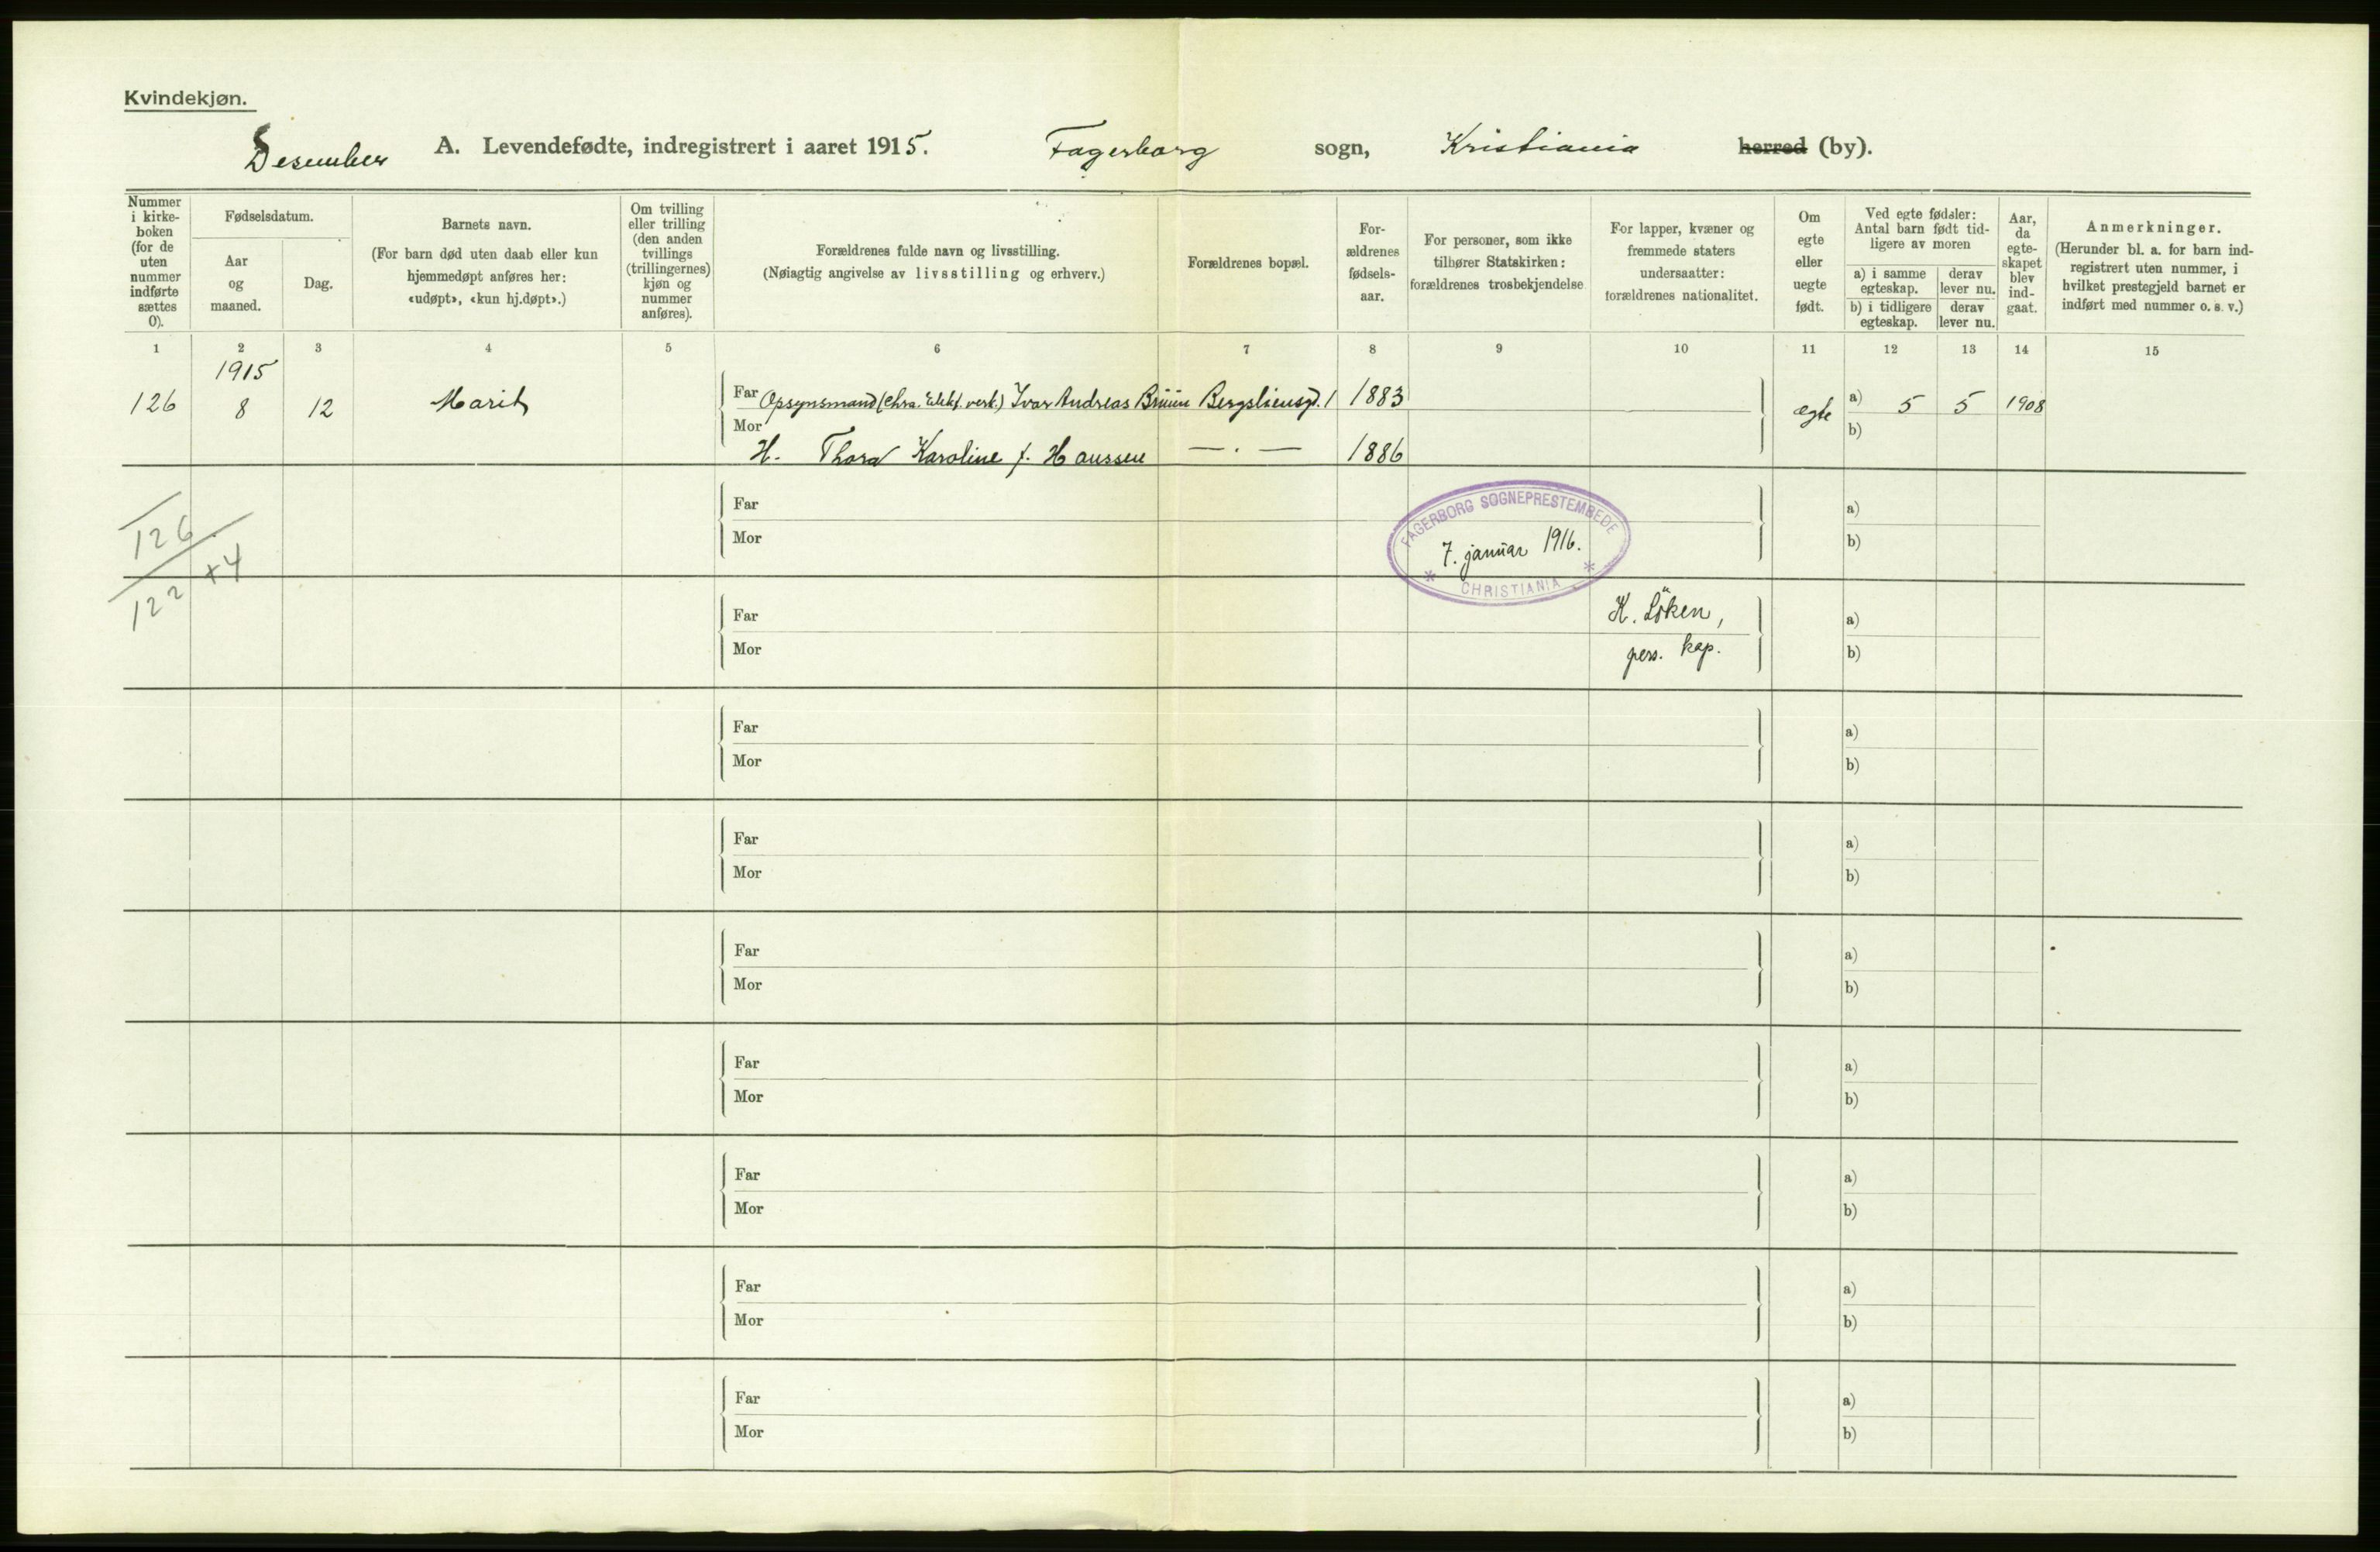 Kvindekjøn.
Desember A. Levendefødte, indregistrert i aaret 1915. Fagerborg sogn, Kristiania herred (by).
Nummer i kirke-boken (for de uten nummer indførte sættes 0).
Fødselsdatum.
Aar og maaned.
Dag.
Barnets navn.
(For barn død uten daab eller kun hjemmedøpt anføres her: «udøpt», «kun hj.døpt».)
Om tvilling eller trilling (den anden tvillings (trillingernes) kjøn og nummer anføres).
Forældrenes fulde navn og livsstilling.
(Nøiagtig angivelse av livsstilling og erhverv.)
Forældrenes bopæl.
For-ældrenes fødsels-aar.
For personer, som ikke tilhører Statskirken: forældrenes trosbekjendelse
For lapper, kvæner og fremmede staters undersaatter: forældrenes nationalitet.
Om egte eller uegte født.
Ved egte fødsler: Antal barn født tid-ligere av moren
a) i samme egteskap.
derav lever nu.
b) i tidligere egteskap.
derav lever nu.
Aar, da egte-skapet blev ind-gaat.
Anmerkninger.
(Herunder bl. a. for barn ind-registrert uten nummer, i hvilket prestegjeld barnet er indført med nummer o. s. v.)
1 2 3 4 5 6 7 8 9 10 11 12 13 14 15
1915
126 8 12 Marit Far Opsynsmand (Chra. Elekt. verk.) Ivar Andreas Bruun Bergsliensgt. 1 1883 ægte a) 5 5 1908
Mor H. Thora Karoline f. Haussen — . — 1886 b)
126
122 +4
Far a)
Mor b)
FAGERBORG SOGNEPRESTEMBEDE
7. januar 1916.
* CHRISTIANIA *
Far K. Löken, a)
Mor pers. kap. b)
Far a)
Mor b)
Far a)
Mor b)
Far a)
Mor b)
Far a)
Mor b)
Far a)
Mor b)
Far a)
Mor b)
Far a)
Mor b)